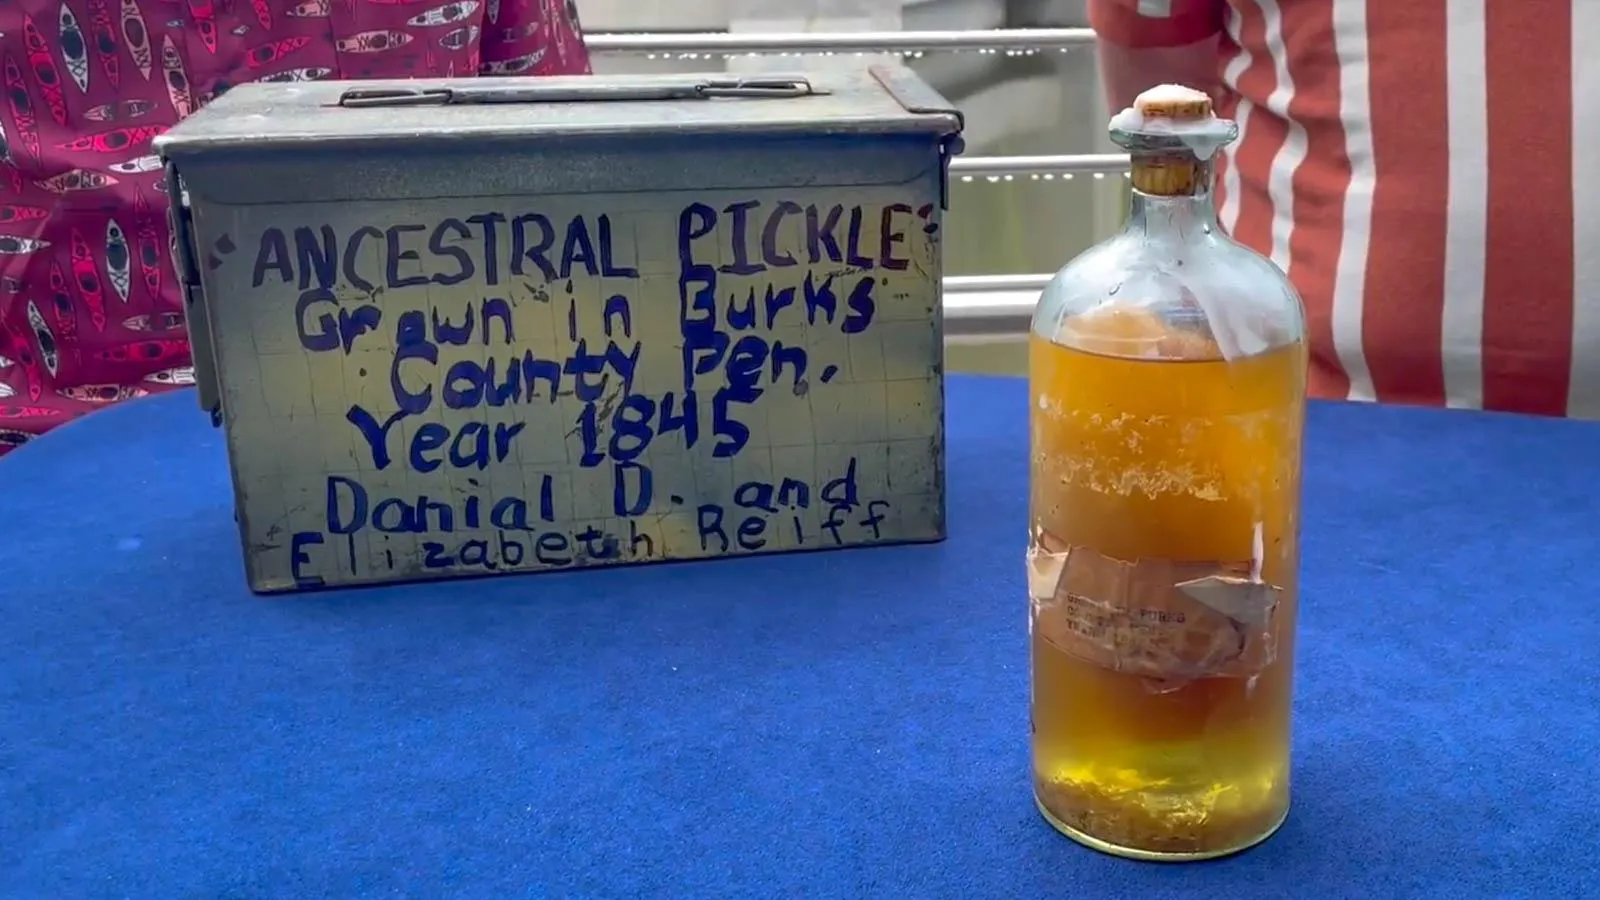 "ANCESTRAL PICKLE"
Grown in Burks
County Pen.
Year 1845
Danial D. and
Elizabeth Reiff